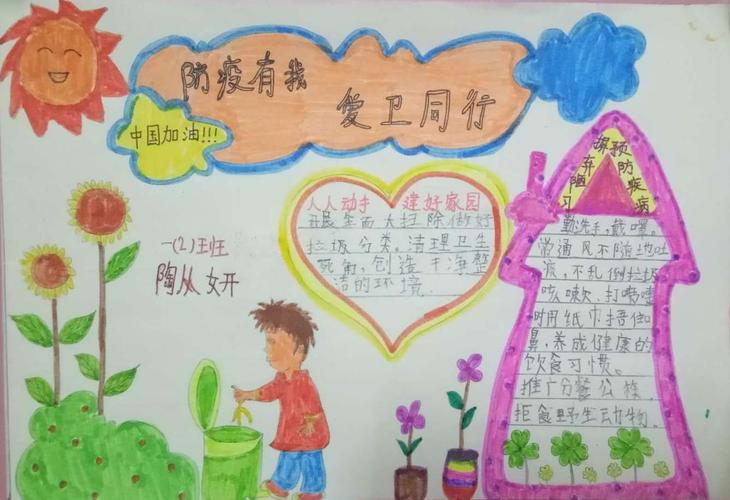 防疫有我
爱卫同行
中国加油!!!
人人动手 建好家园
开展全面大扫除做好
垃圾分类。清理卫生
死角，创造干净整
洁的环境.
一(2)班
陶从妍
摒弃陋习
预防疾病
勤洗手，戴口罩。
常通风不随地吐
痰，不乱倒垃圾
咳嗽、打喷嚏
时用纸巾捂住口
鼻，养成健康的
饮食习惯。
推广分餐公筷，
拒食野生动物.